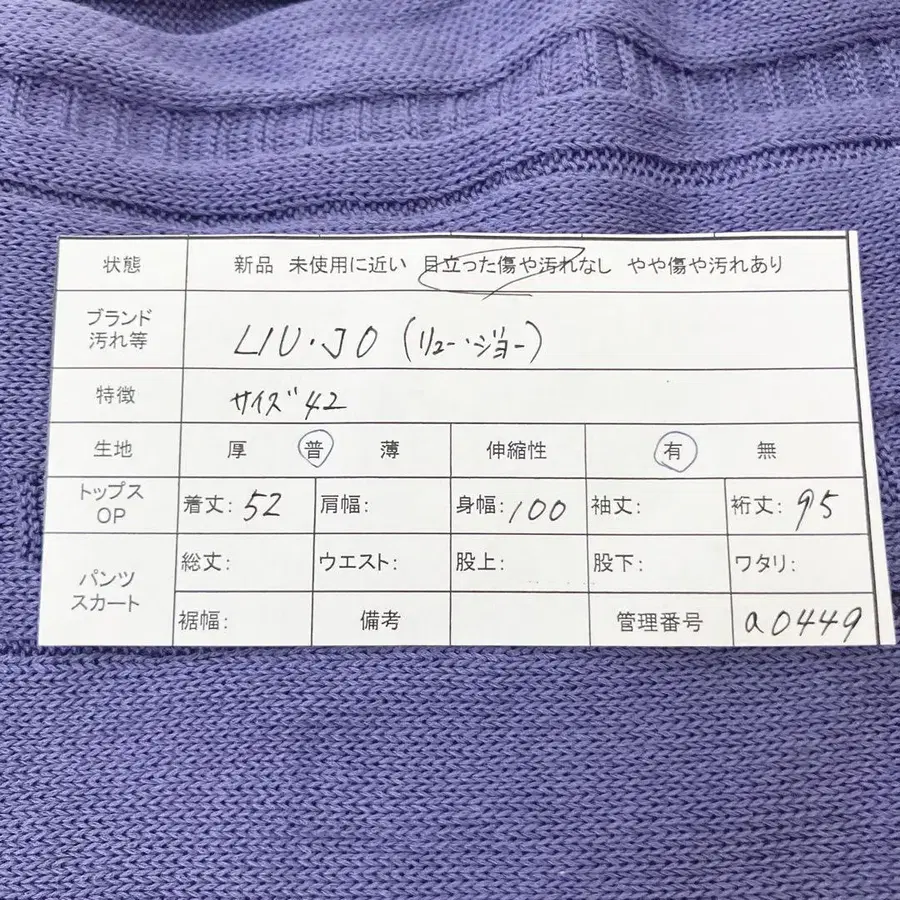 状態 新品 未使用に近い 目立った傷や汚れなし やや傷や汚れあり
ブランド
汚れ等 LIU・JO (リュー・ジョー)
特徴 サイズ 42
生地 厚 普 薄 伸縮性 有 無
トップス
OP 着丈: 52 肩幅: 身幅: 100 袖丈: 裄丈: 95
パンツ
スカート 総丈: ウエスト: 股上: 股下: ワタリ:
裾幅: 備考 管理番号 a0449